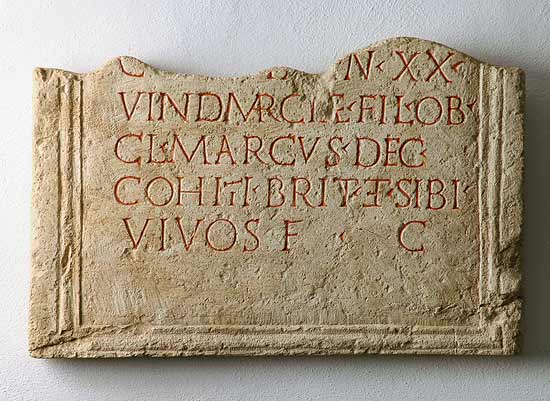 N · XX ·
VINDMRCIE · FIL · OB ·
CL · MARCVS · DEC
COH III · BRIT · ET · SIBI ·
VIVOS F · C